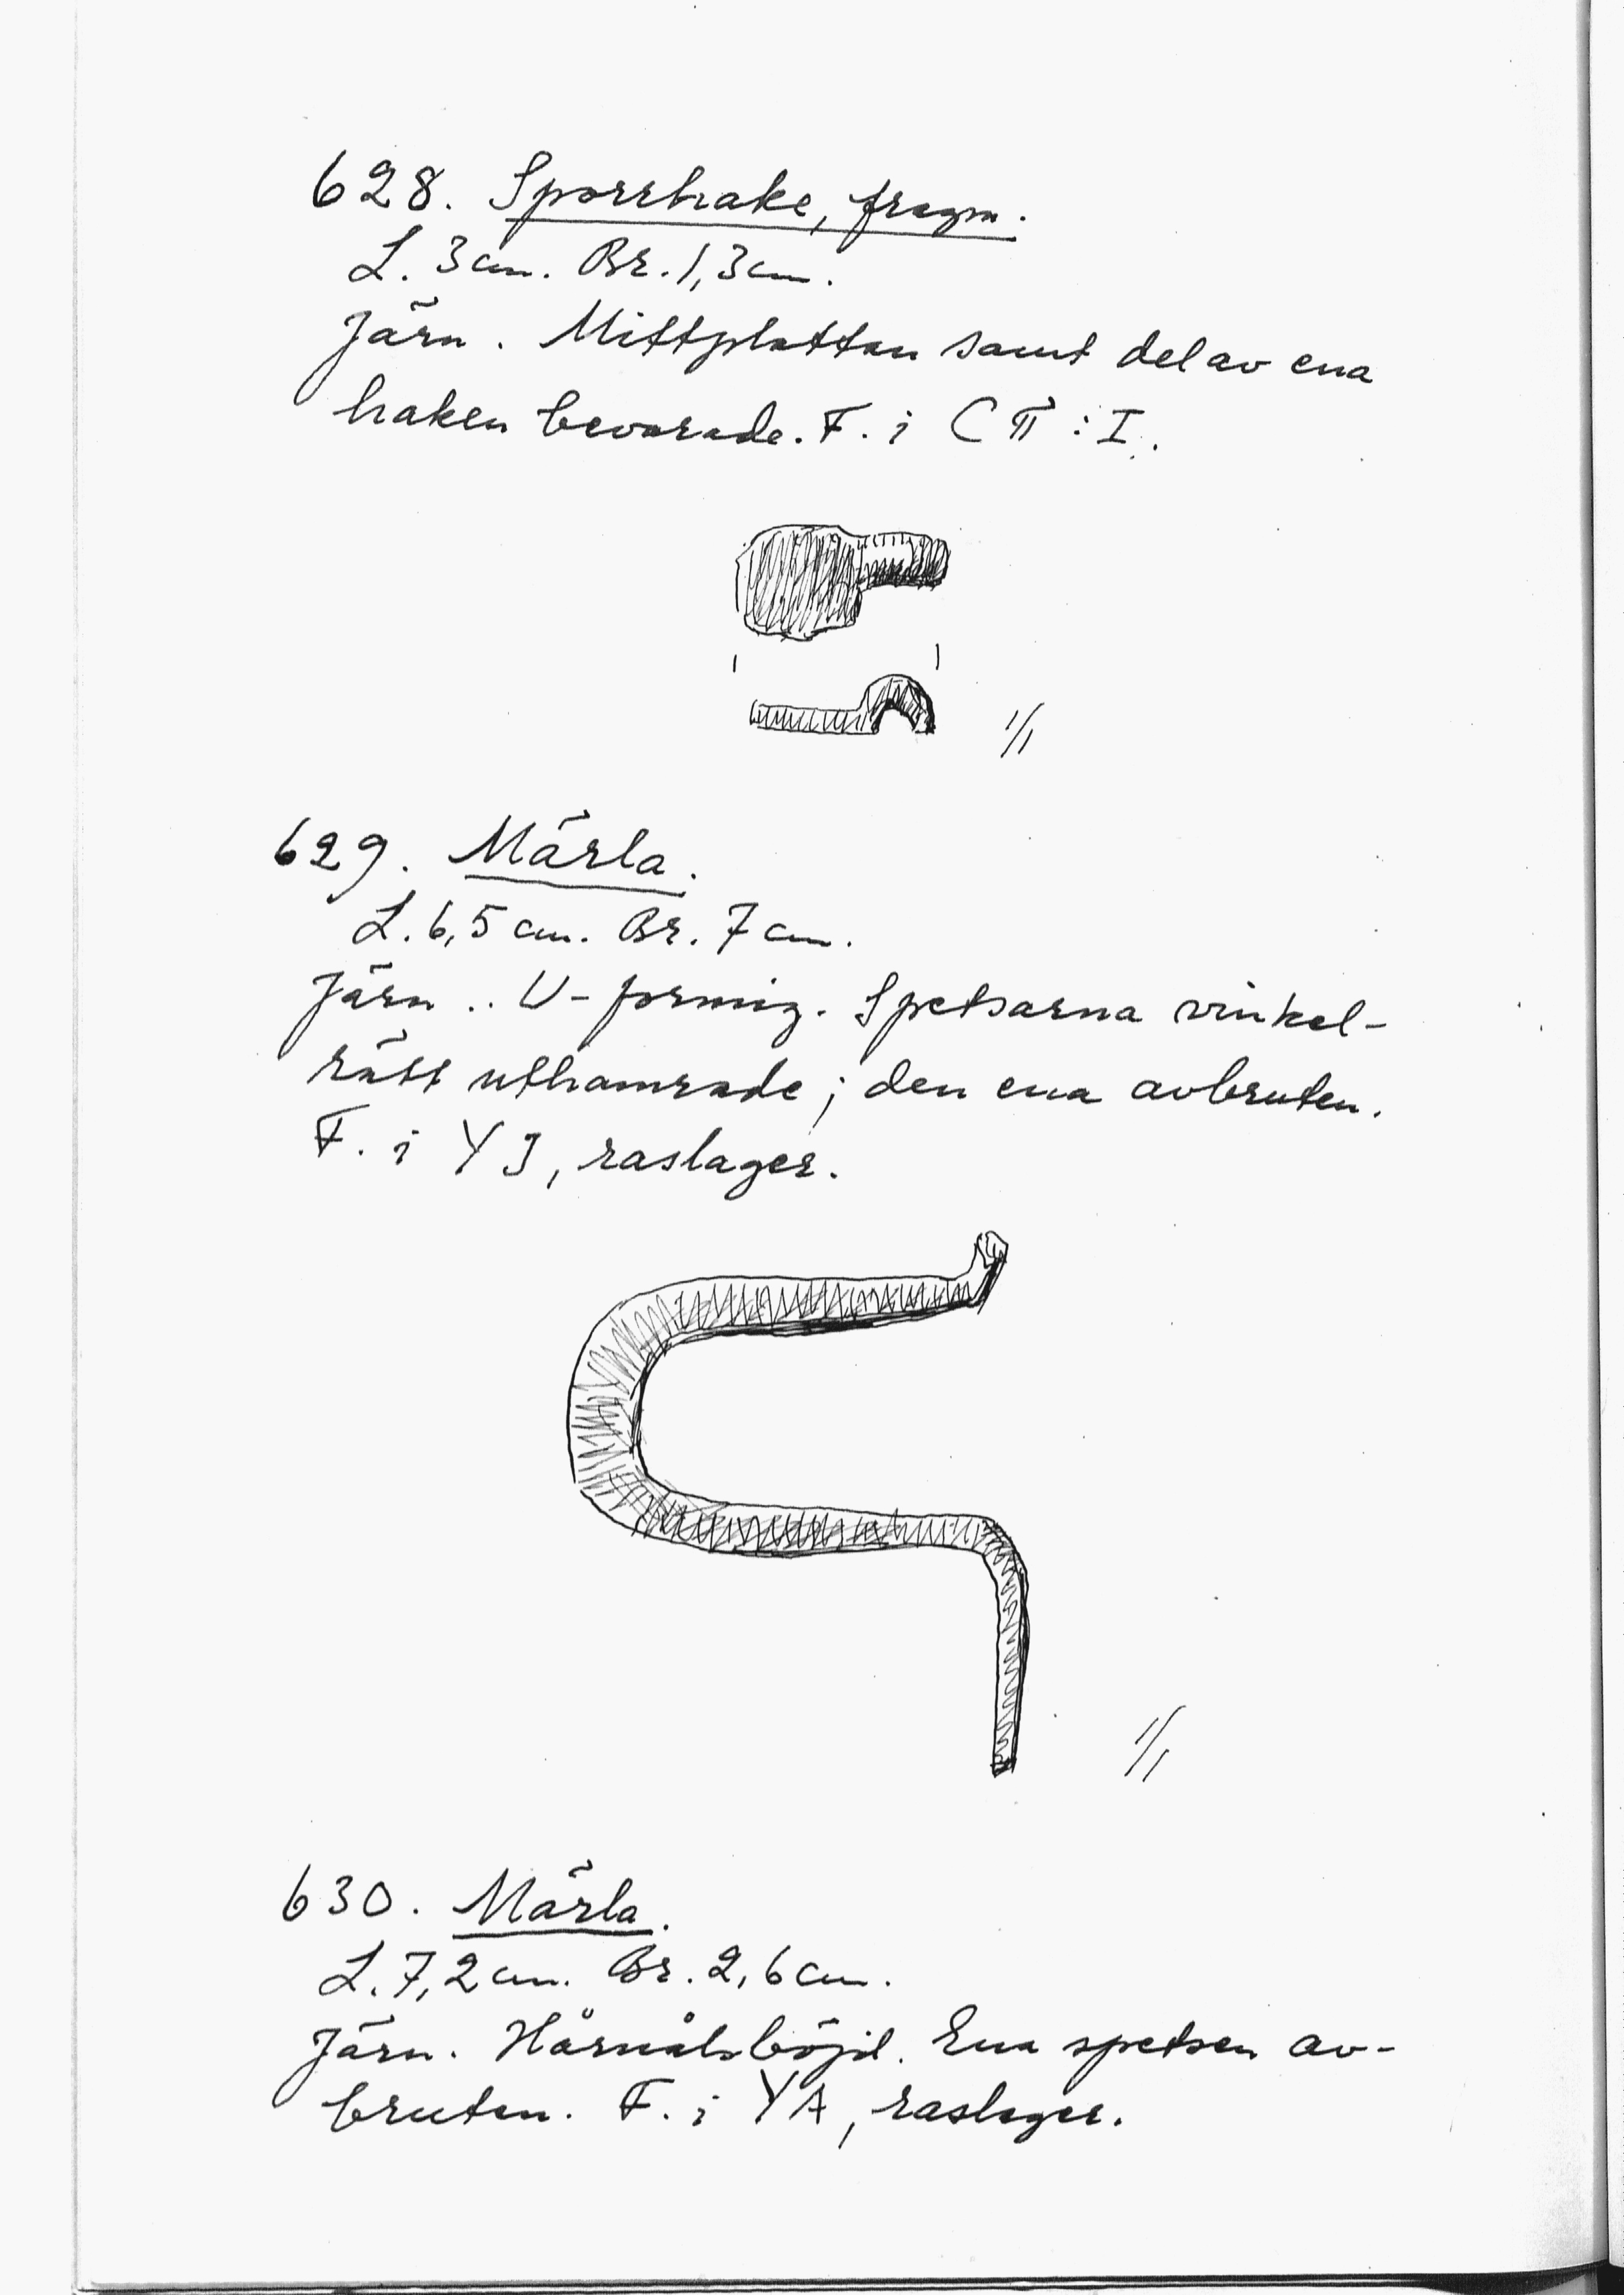 628. Sporrhake, fragm.
L. 3 cm. Br. 1,3 cm.
Järn. Mittplattan samt del av ena
haken bevarade. F. i C II : I.
1/1
629. Märla.
L. 6,5 cm. Br. 7 cm.
Järn.. U-formig. Spetsarna vinkel-
rätt uthamrade; den ena avbruten.
F. i YJ, raslager.
1/1
630. Märla.
L. 7,2 cm. Br. 2,6 cm.
Järn. Hårnålsböjd. Ena spetsen av-
bruten. F. i YA, raslager.